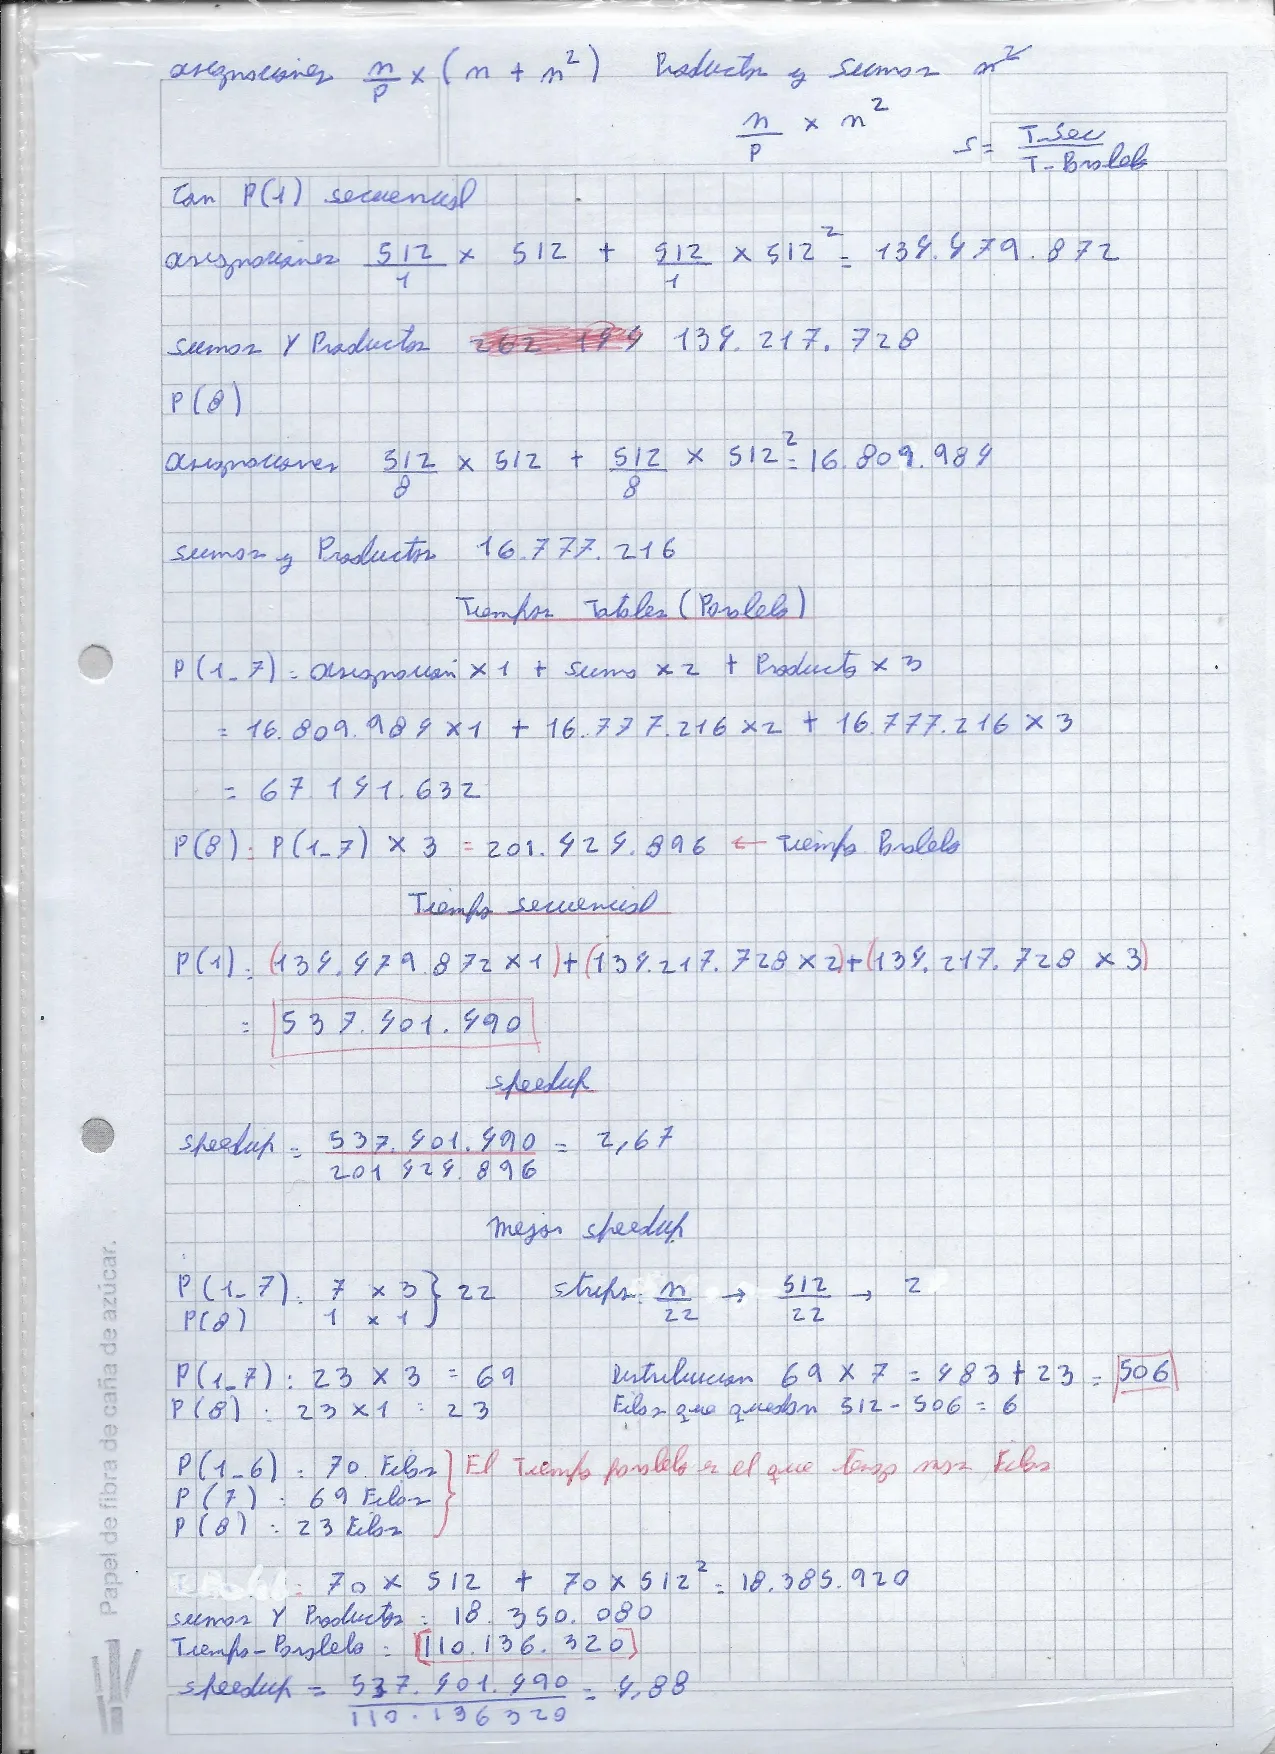 asignaciones n/p x (n + n²) Productos y sumas n²
n/p x n²
S = T-Sec / T-Paralelo
Con P(1) secuencial
asignaciones 512/1 x 512 + 512/1 x 512² = 134.479.872
sumas Y Productos 262.144 134.217.728
P(8)
asignaciones 512/8 x 512 + 512/8 x 512² = 16.809.984
sumas y Productos 16.777.216
Tiempos Totales (Paralelo)
P(1-7): asignación x 1 + suma x 2 + Producto x 3
= 16.809.984 x 1 + 16.777.216 x 2 + 16.777.216 x 3
= 67 141.632
P(8): P(1-7) x 3 = 201.424.896 ← Tiempo Paralelo
Tiempo secuencial
P(1): (134.479.872 x 1) + (134.217.728 x 2) + (134.217.728 x 3)
= 537.401.490
speedup
speedup = 537.401.490 / 201 424.896 = 2,67
Mejor speedup
P(1-7): 7 x 3 } 22 strips: n/22 → 512/22 → 2
P(8) 1 x 1
P(1-7): 23 x 3 = 69 Distribucion 69 x 7 = 483 + 23 = 506
P(8): 23 x 1 = 23 Filas que quedan 512 - 506 = 6
P(1-6): 70 Filas } El Tiempo paralelo es el que tenga mas Filas
P(7): 69 Filas
P(8): 23 Filas
: 70 x 512 + 70 x 512² = 18.385.920
sumas Y Productos: 18.350.080
Tiempo-Paralelo: [110.136.320]
speedup = 537.401.490 / 110.136320 = 4,88
Papel de fibra de caña de azúcar.